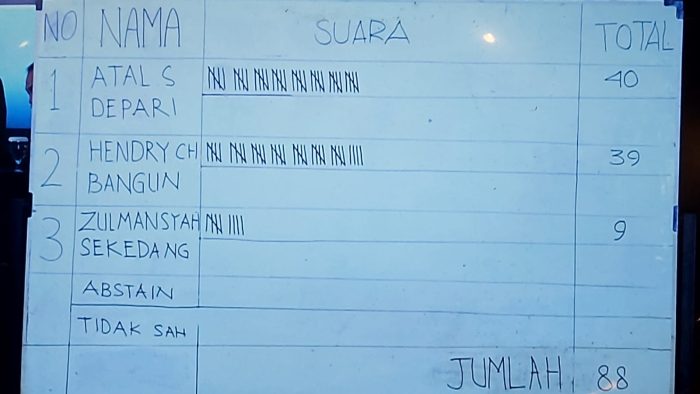 NO NAMA SUARA TOTAL
1 ATAL S 40
DEPARI
2 HENDRY CH 39
BANGUN
3 ZULMANSYAH 9
SEKEDANG
ABSTAIN
TIDAK SAH
JUMLAH 88